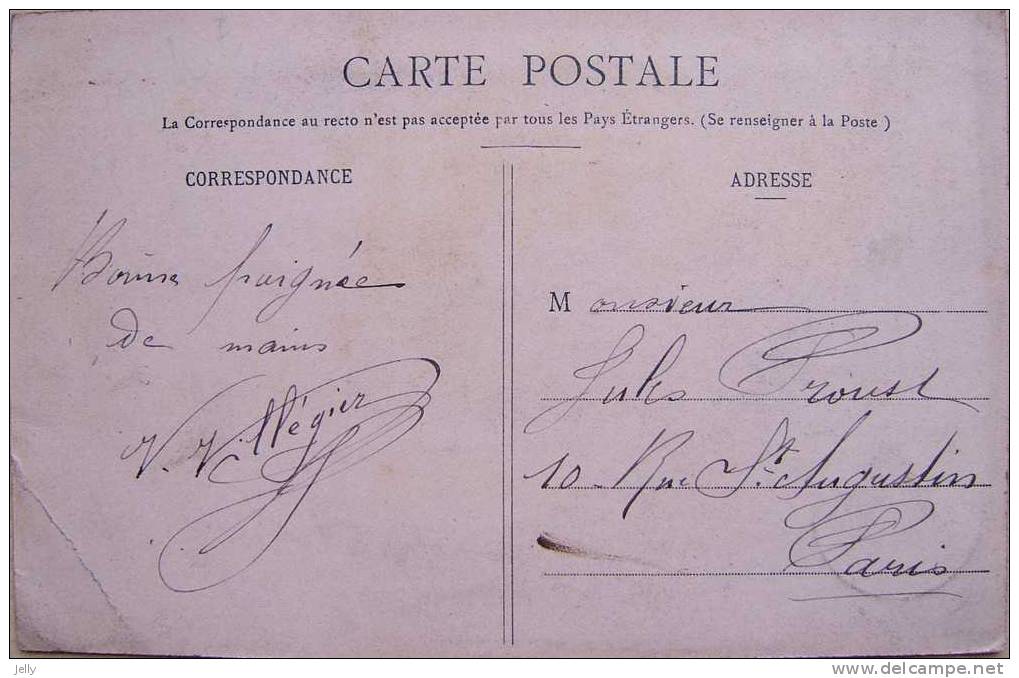 CARTE POSTALE
La Correspondance au recto n'est pas acceptée par tous les Pays Étrangers. (Se renseigner à la Poste )
CORRESPONDANCE
Bonne poignée
de mains
V. Villégier
ADRESSE
Monsieur
Jules Proust
10 Rue St. Augustin
Paris
jelly
www.delcampe.net